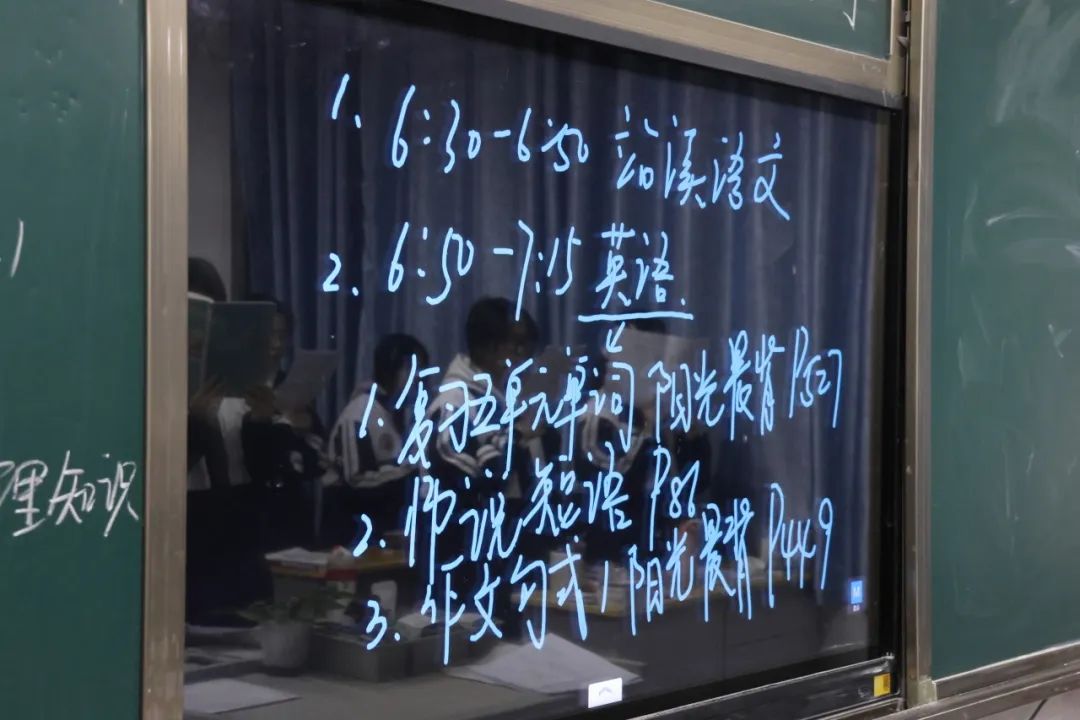 1. 6:30-6:50 语文
2. 6:50-7:15 英语.
1. 复习五单元单词 阳光晨背 P527
2. 师说短语 P86
3. 作文句式 / 阳光晨背 P449
理知识